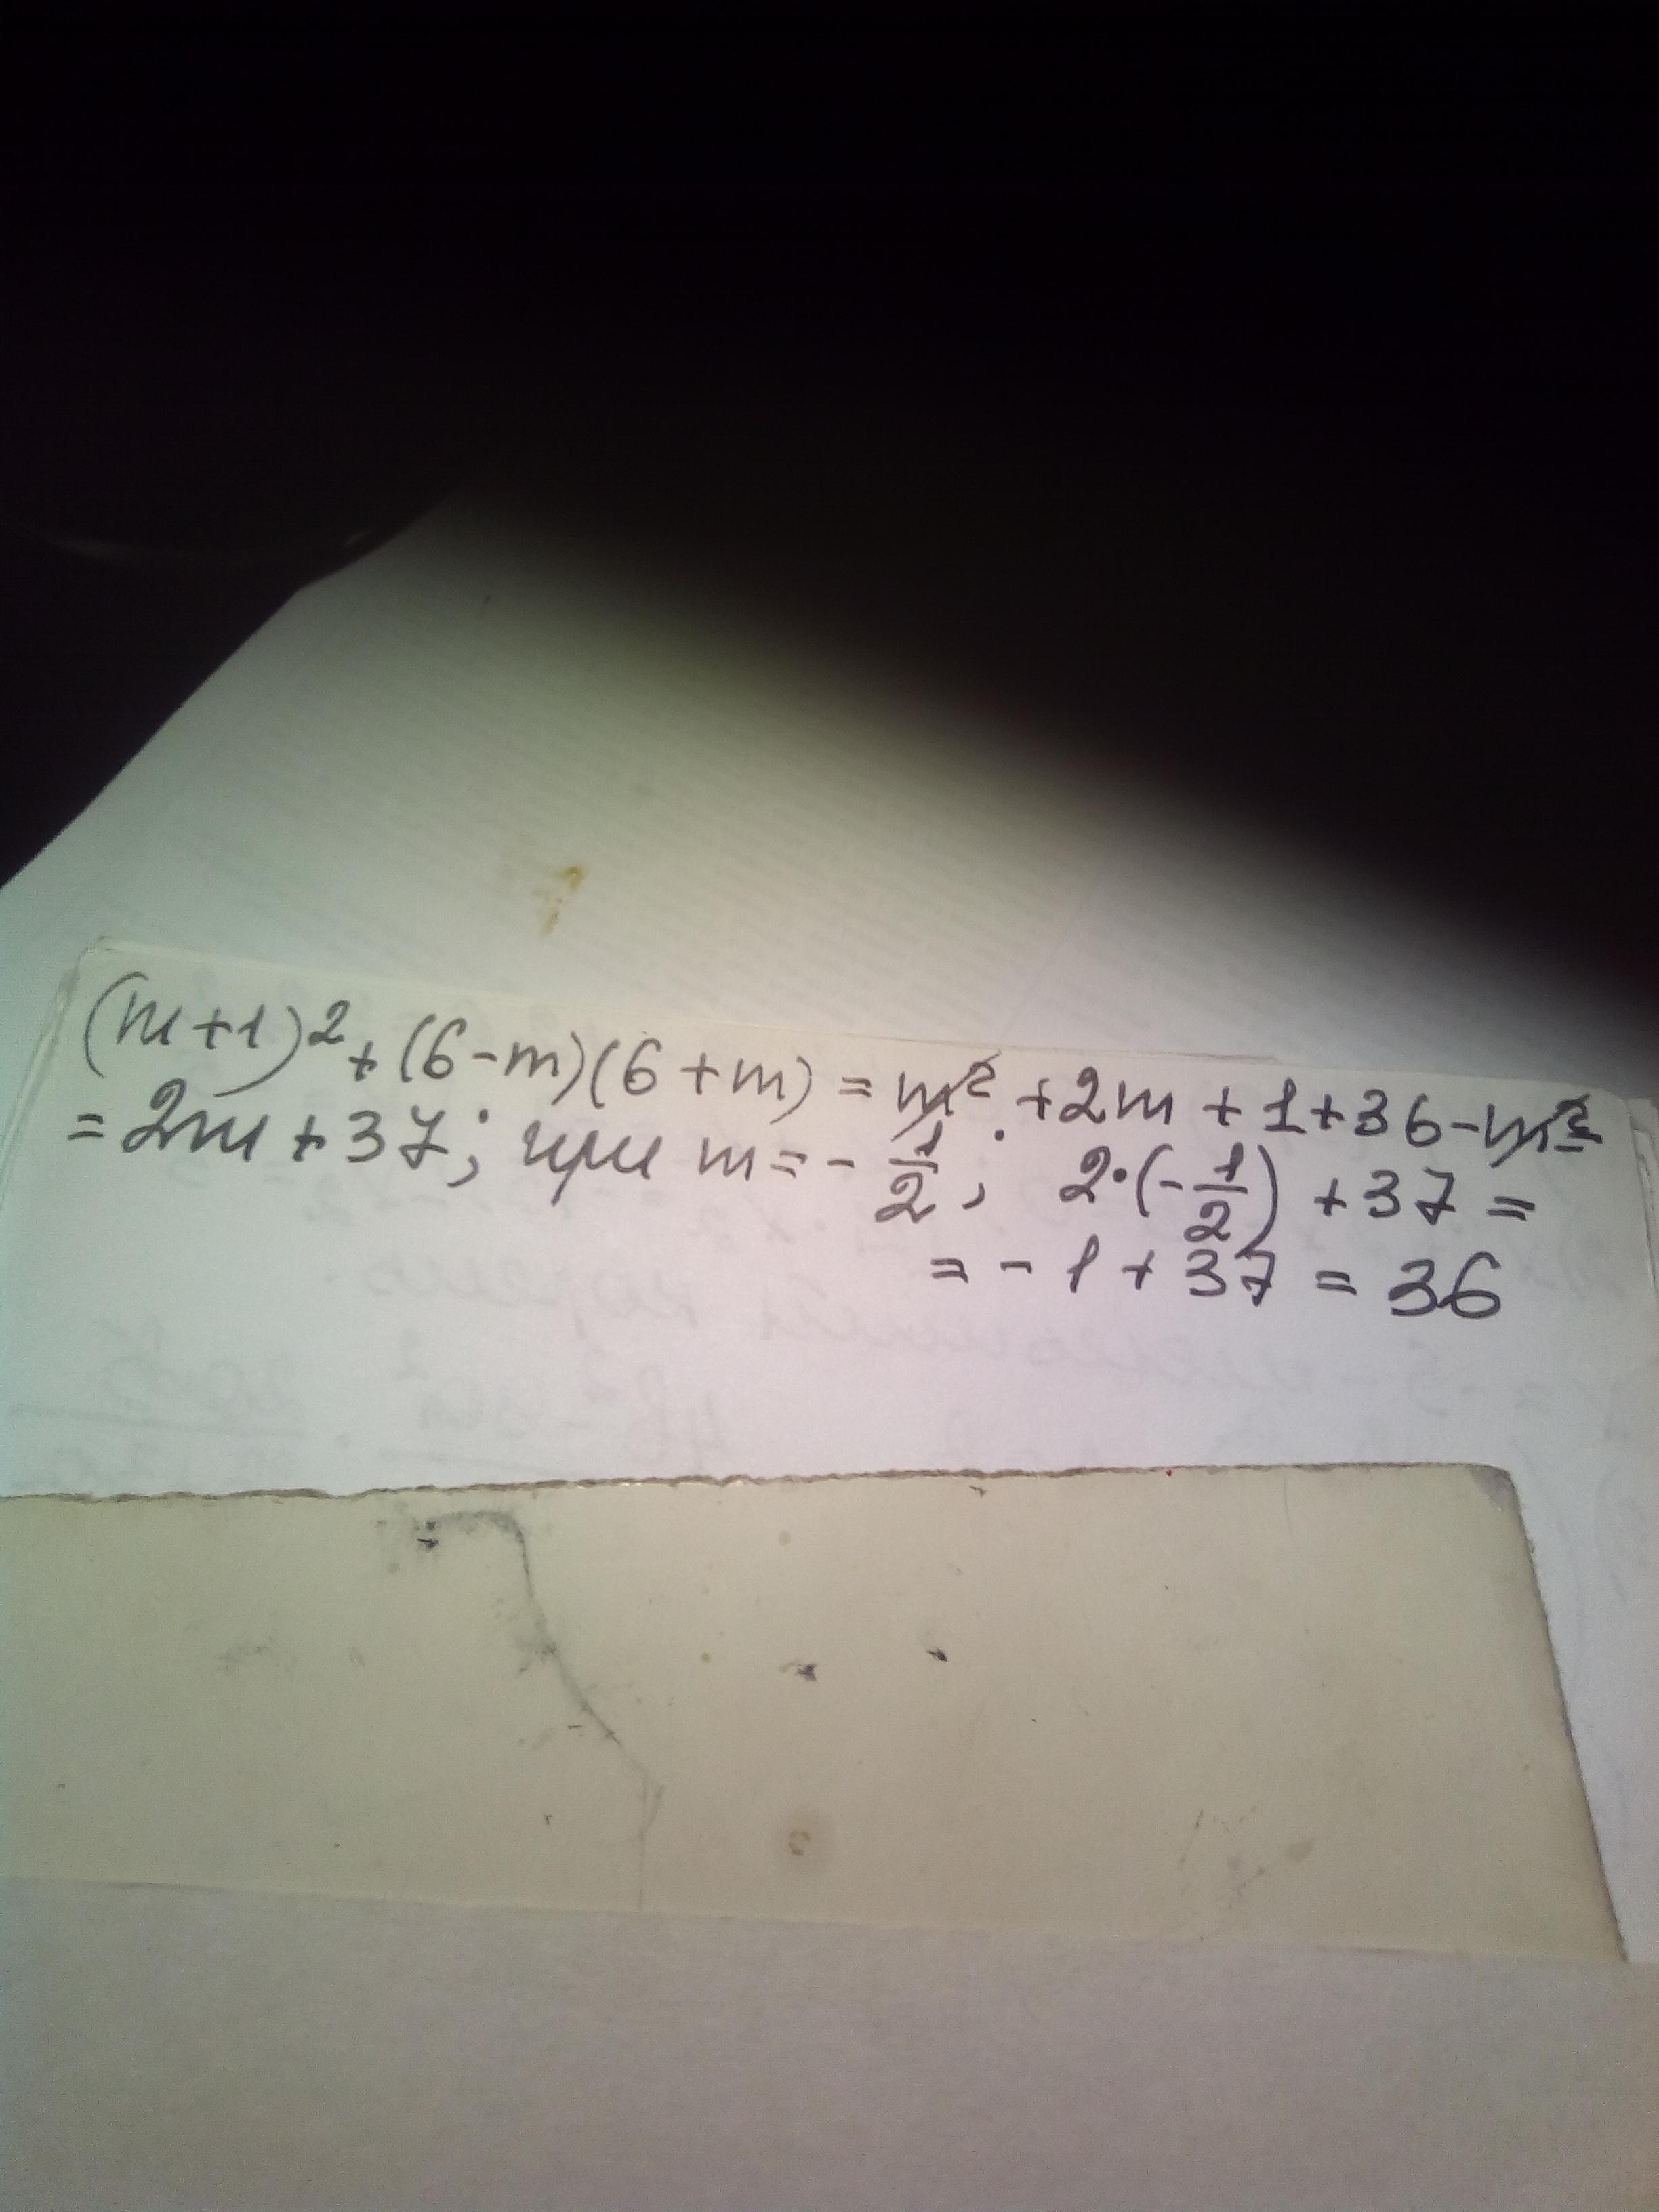 (m+1)²+(6-m)(6+m)=m²+2m+1+36-m²=
=2m+37; при m=-1/2; 2·(-1/2)+37=
=-1+37=36